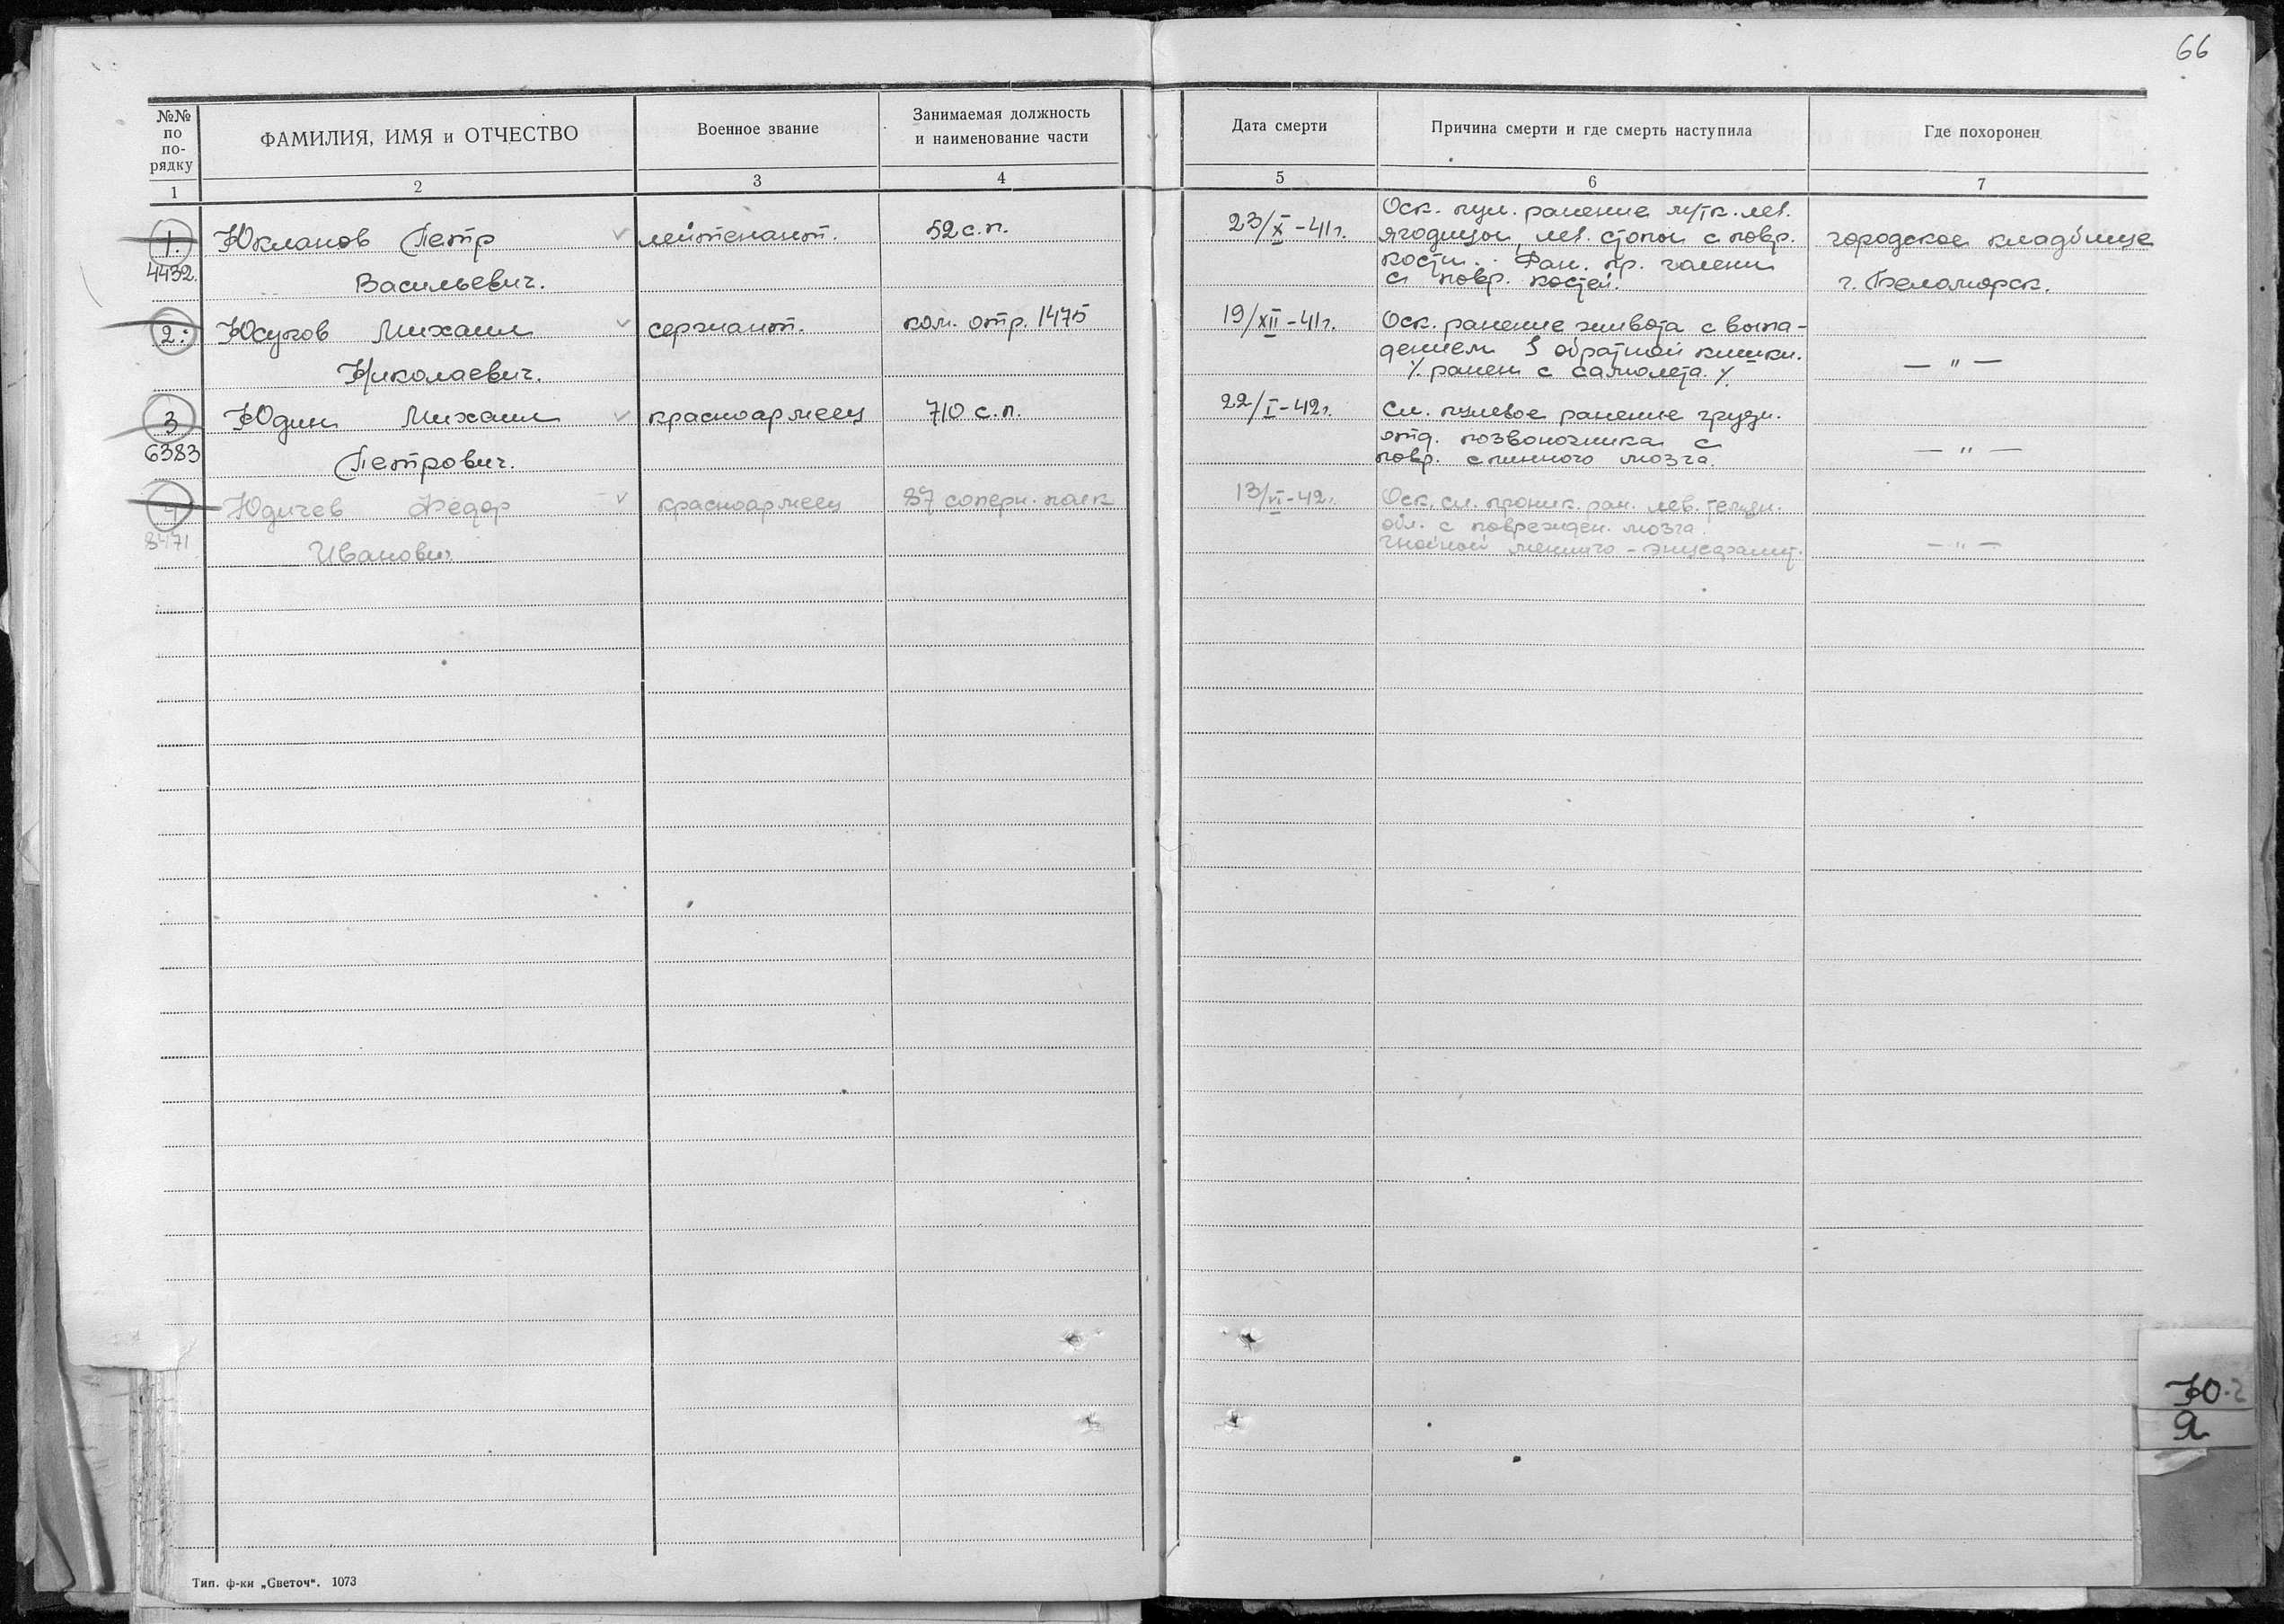 66
№№ по по- рядку
ФАМИЛИЯ, ИМЯ и ОТЧЕСТВО
Военное звание
Занимаемая должность
и наименование части
Дата смерти
Причина смерти и где смерть наступила
Где похоронен
1 2 3 4 5 6 7
1. Юкланов Петр лейтенант. 52 с.п. 23/X-41г.
4432 Васильевич.
Оск. пул. ранение м/тк. лев.
ягодицы, лев. стопы с повр.
кости. Ран. пр. голени
с повр. костей.
городское кладбище
г. Беломорск.
2. Юсупов Михаил сержант. ком. отр. 1475 19/XII-41г.
Николаевич.
Оск. ранение живота с выпа-
дением S обратной кишки.
ранен с самолета.
— " —
3 Юдин Михаил красноармеец 710 с.п. 22/I-42г.
6383 Петрович.
Сл. пулевое ранение грудн.
отд. позвоночника с
повр. спинного мозга.
— " —
4 Юдичев Федор красноармеец 87 саперн. полк 13/VI-42г.
8471 Иванович
Оск. сл. проник. ран. лев.
обл. с поврежден. мозга.
гнойной менинго-энцефалит.
— " —
Ю
Я
Тип. ф-ки „Светоч“. 1073